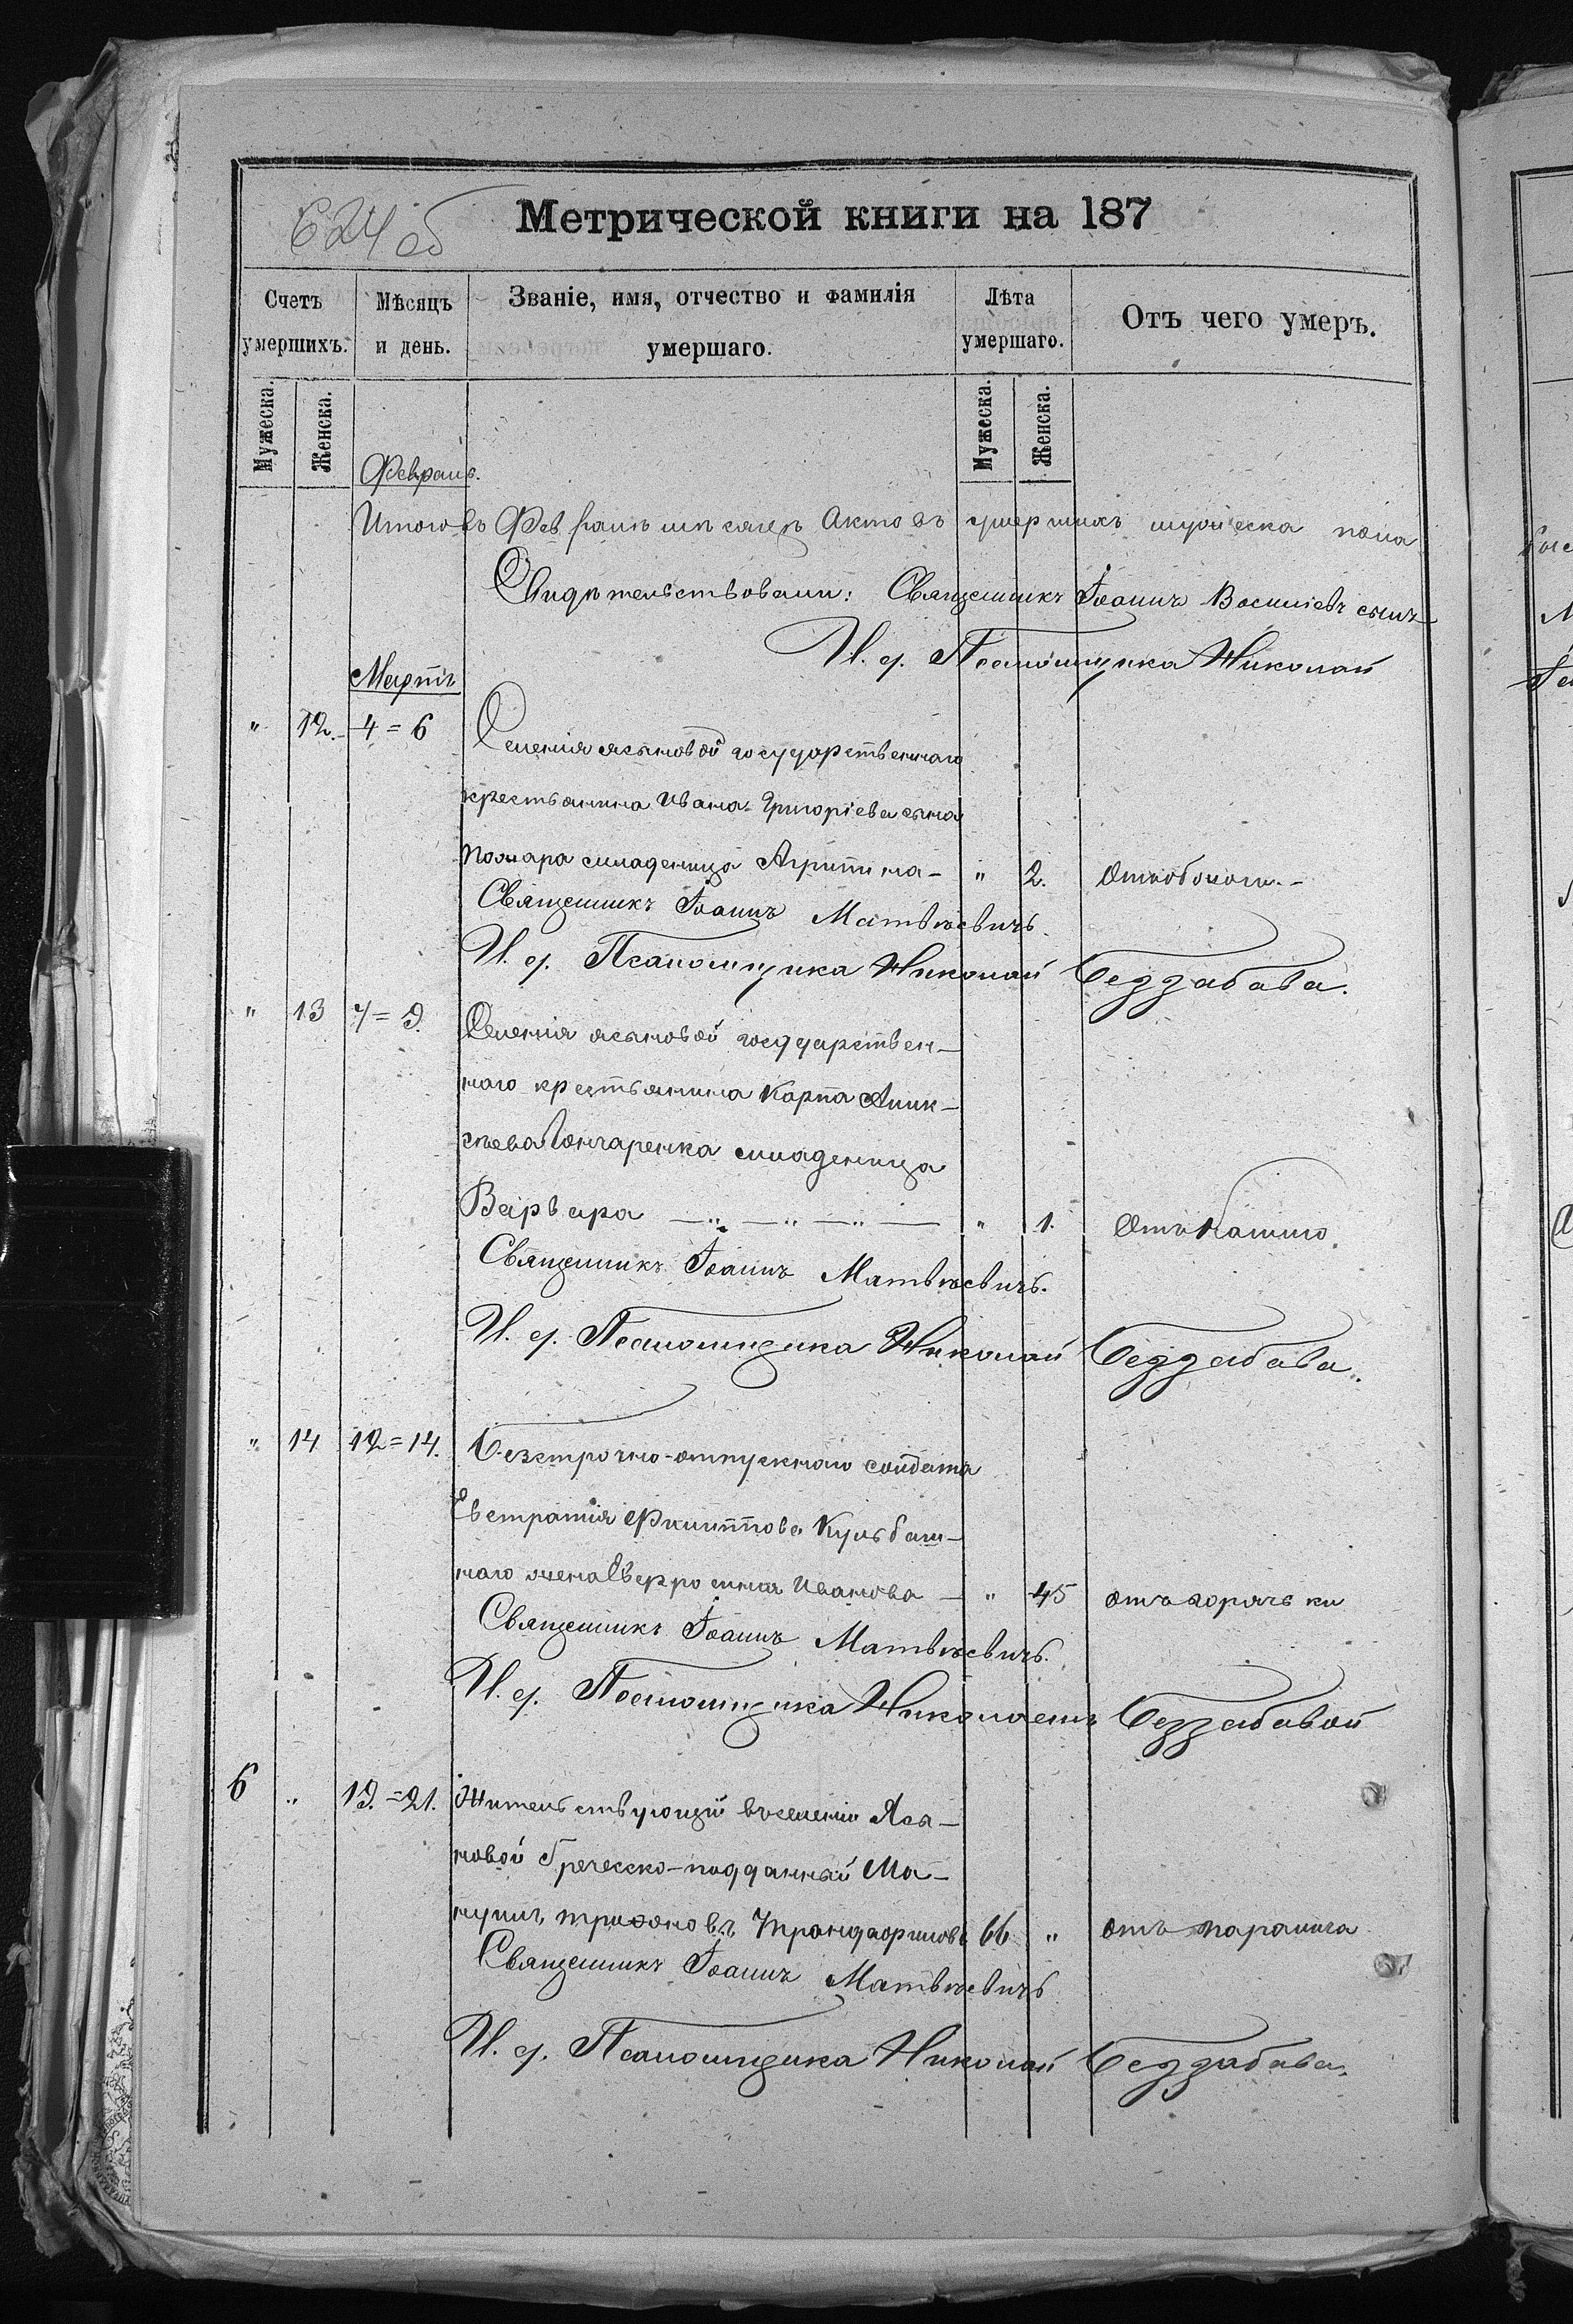 624 об
Метрической книги на 187
Счетъ умершихъ.
Мѣсяцъ и день.
Званіе, имя, отчество и фамилія умершаго.
Лѣта умершаго.
Отъ чего умеръ.
Мужеска.
Женска.
Мужеска.
Женска.
Февраль.
Итого въ Февралѣ мѣсяцѣ Актовъ умершихъ мужеска пола
Свидѣтельствовали: Священникъ Іоаннъ Василіевъ сынъ
И. д. Псаломщика Николай
Мартъ
" 12. 4 = 6 Селенія Асановой государственнаго
крестьянина Ивана Григоріева сына
младеница Агрипина - " 2.
Священникъ Іоаннъ Матвѣевичъ.
И. д. Псаломщика Николай Беззабава.
" 13 7 = 9. Селенія Асановой государствен-
наго крестьянина Карпа Алик-
сѣева Гончаренка младеница
Варвара " 1. Отъ кашлю.
Священникъ Іоаннъ Матвѣевичъ.
И. д. Псаломщика Николай Беззабава.
" 14 12 = 14. Безсрочно-отпускнаго солдата
Евстратія
наго жена Иванова - " 45 отъ горячьки
Священникъ Іоаннъ Матвѣевичъ.
И. д. Псаломщика Николаемъ Беззабавой
6 " 19. = 21. Жительствующій въ селеніи Аса-
новой Греческо-подданный Ма-
нуилъ Трандафиловъ 66 " отъ паралича
Священникъ Іоаннъ Матвѣевичъ
И. д. Псаломщика Николай Беззабава.